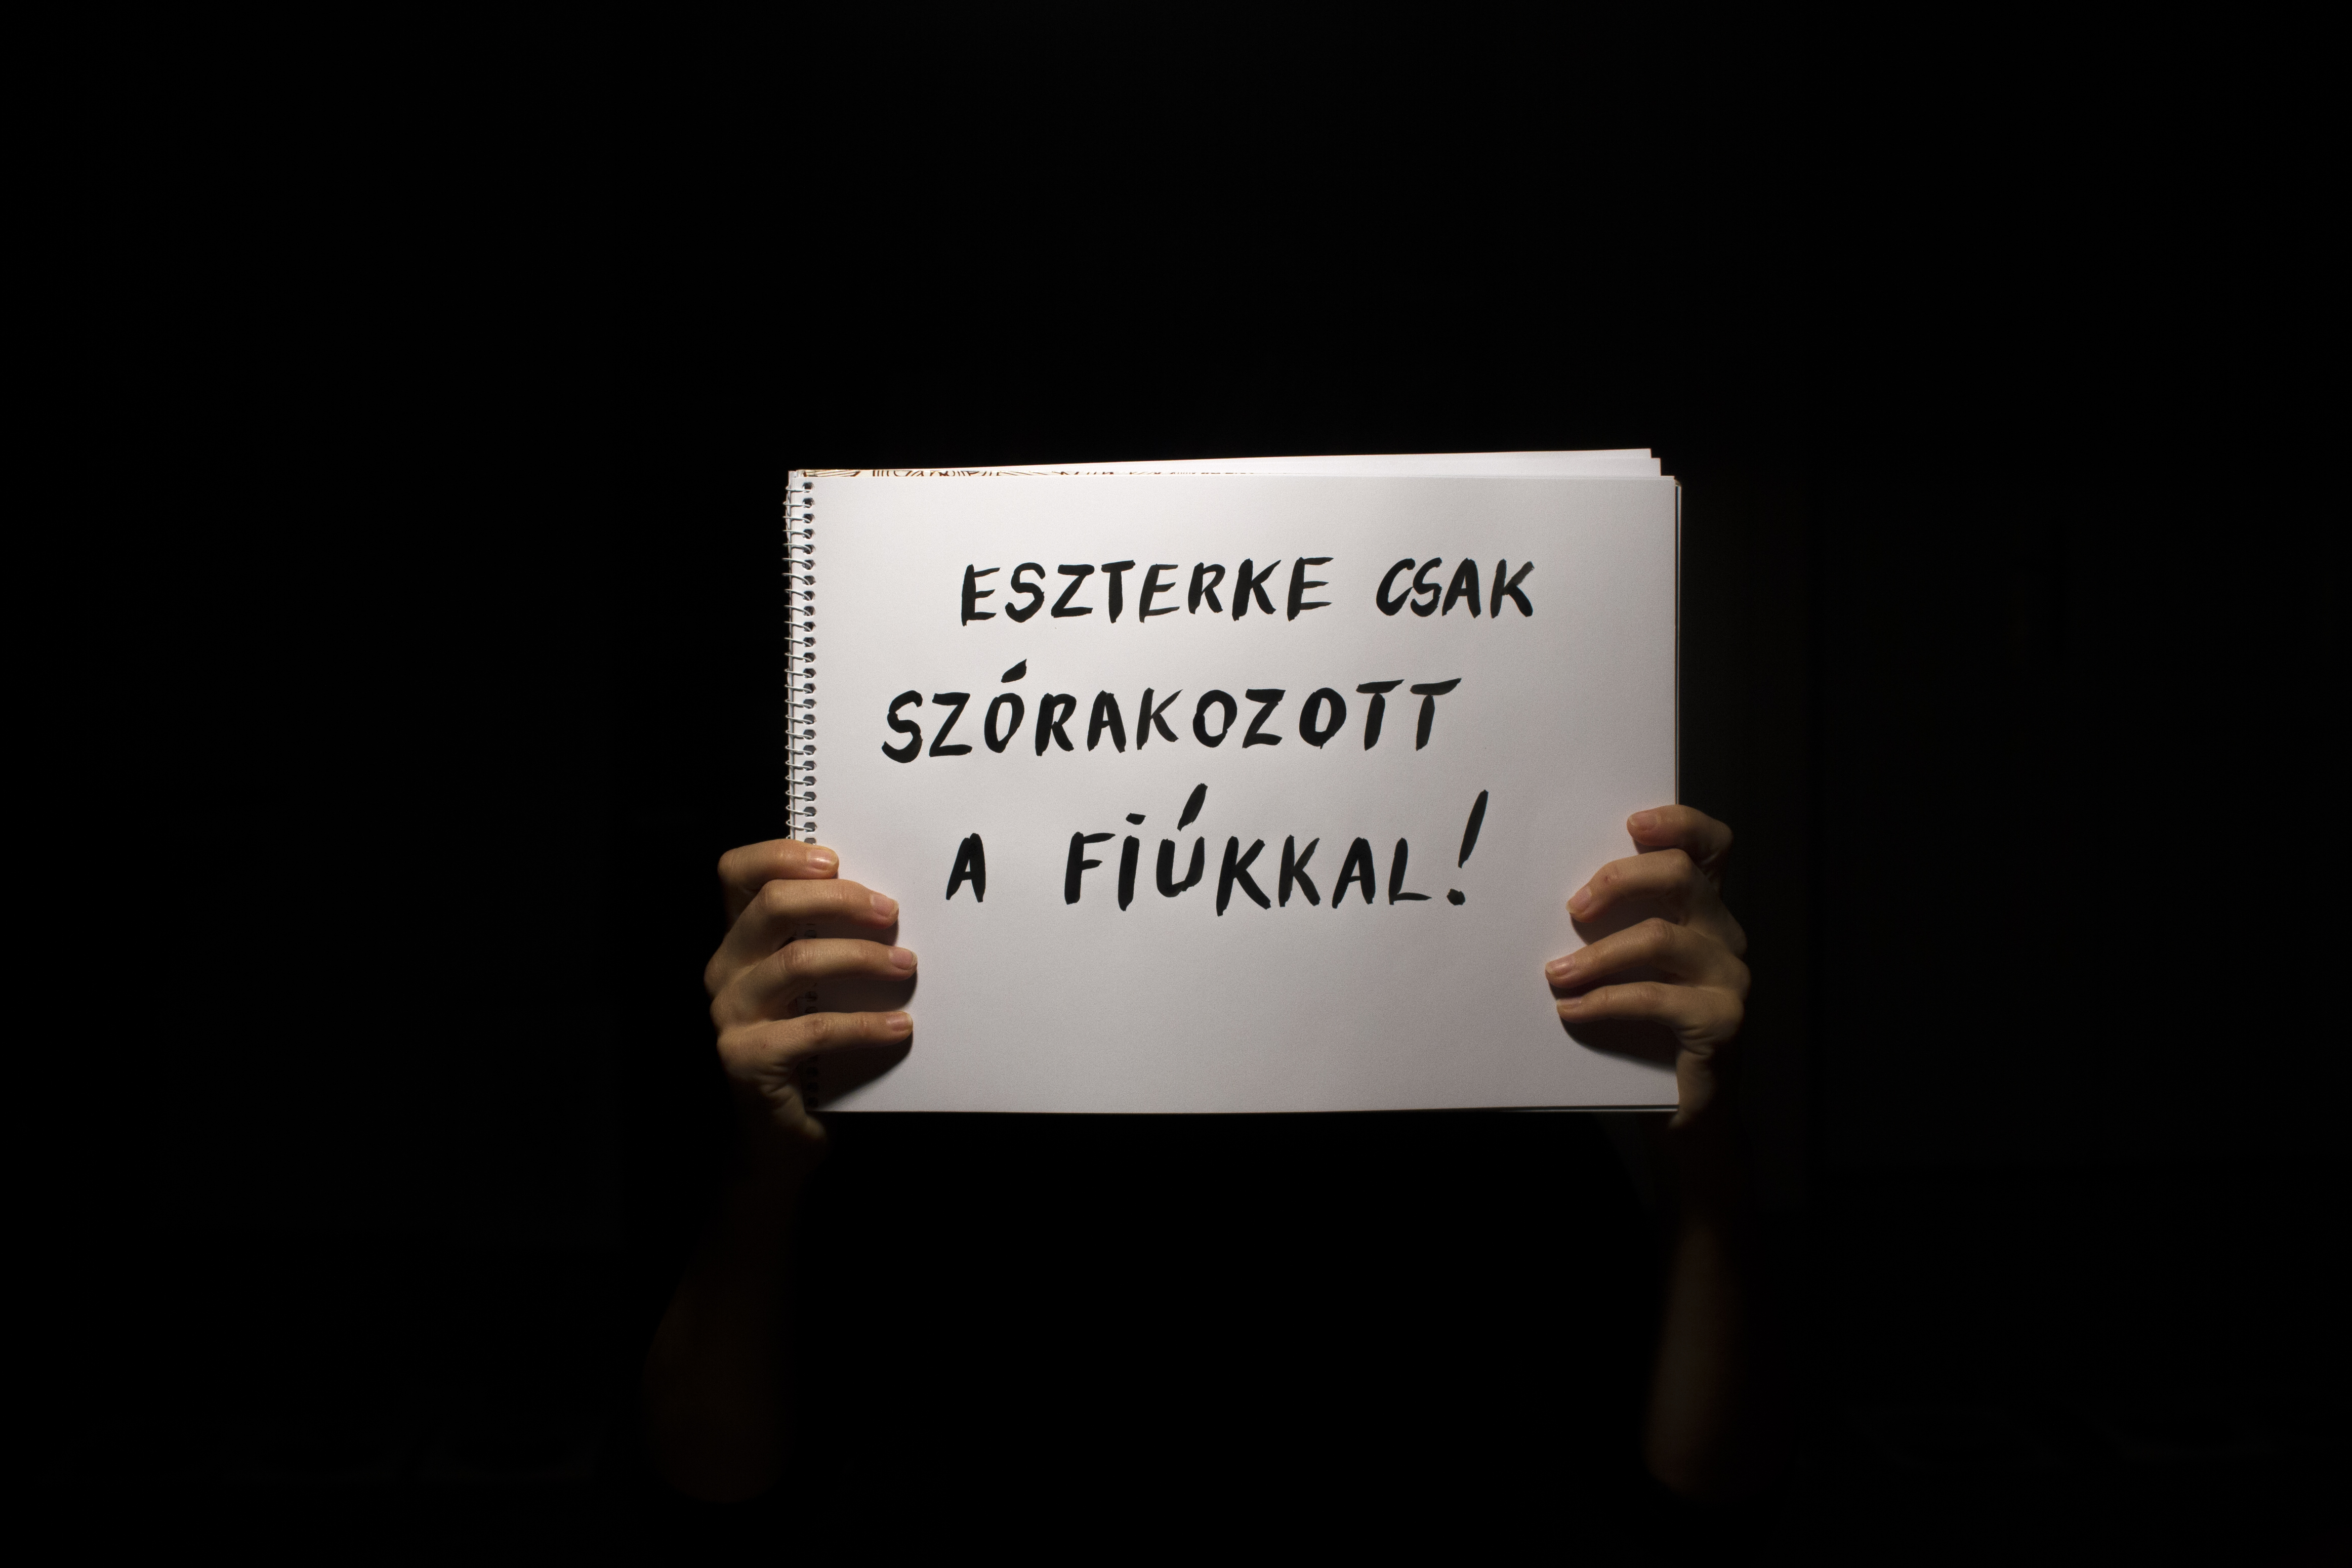 ESZTERKE CSAK
SZÓRAKOZOTT
A FIÚKKAL!